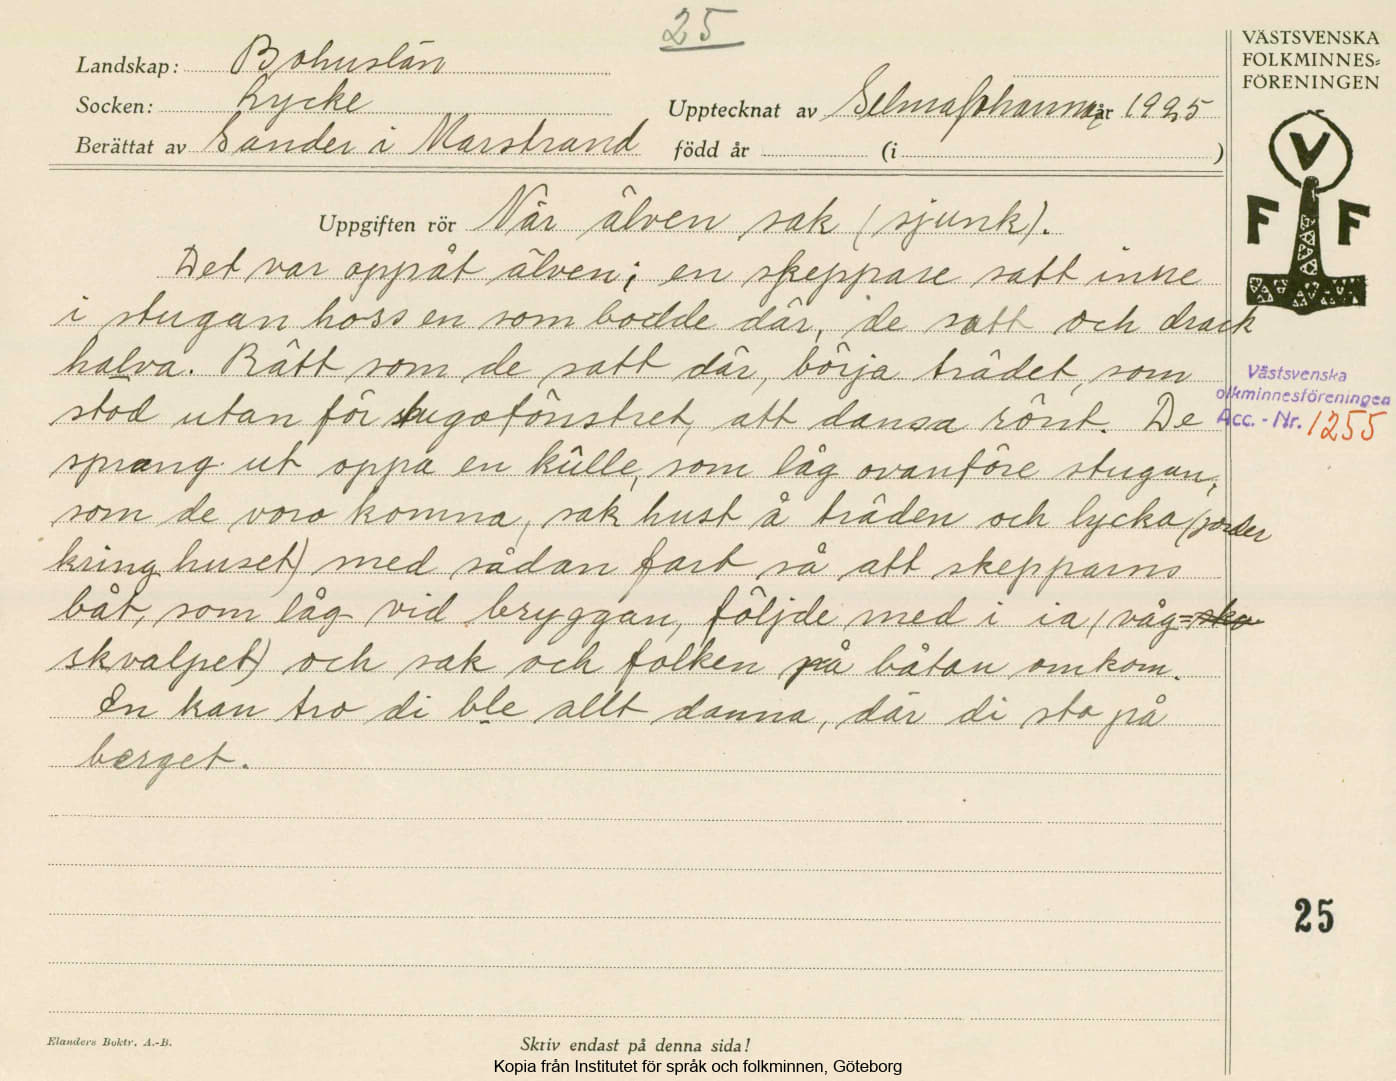 25
VÄSTSVENSKA
FOLKMINNES=
FÖRENINGEN
Landskap: Bohuslän
Socken: Lycke
Upptecknat av Selma Johansson år 1925
Berättat av Sander i Marstrand
född år (i )
V
F F
Uppgiften rör När älven sak (sjunk).
Det var oppåt älven; en skeppare satt inne
i stugan hoss en som bodde där, de satt och drack
halva. Rätt som de satt där, börja trädet, som
stod utan för stugofönstret, att dansa rönt. De
sprang ut oppa en külle, som låg ovanföre stugan,
som de voro komna, sak hust å träden och lycka (jorder
kring huset) med sådan fart så att skepparns
båt, som låg vid bryggan, följde med i ia (våg=
skvalpet) och sak och folken på båtan omkom.
En kan tro di ble allt danna, där di sto på
berget.
Västsvenska
olkminnesföreningen
Acc. - Nr. 1255
25
Elanders Boktr. A.-B.
Skriv endast på denna sida!
Kopia från Institutet för språk och folkminnen, Göteborg